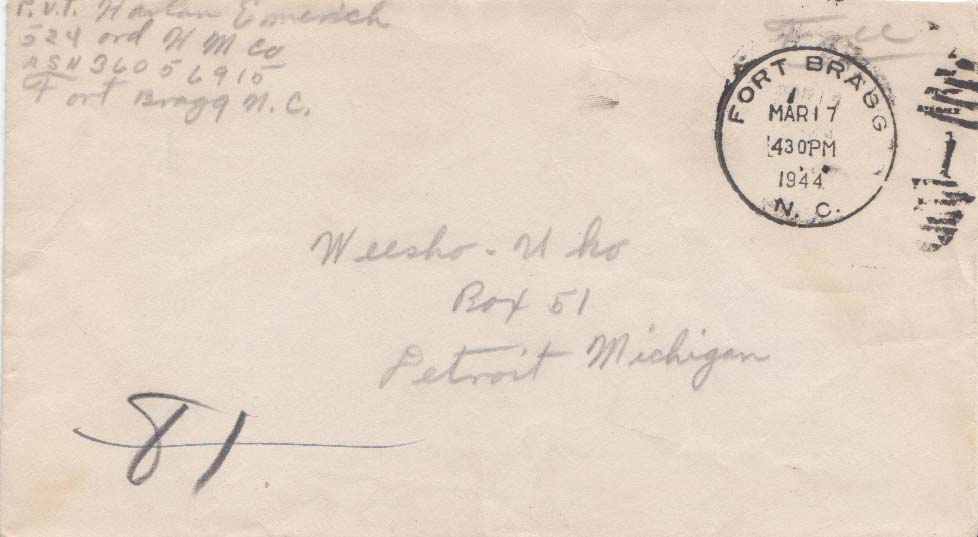 P.V.T. Harlan Emerich
524 ord H M Co
ASN 36056915
Fort Bragg N.C.
Free
FORT BRAGG
MAR 17
430PM
1944
N. C.
Weesho-Uko
Box 51
Detroit Michigan
81